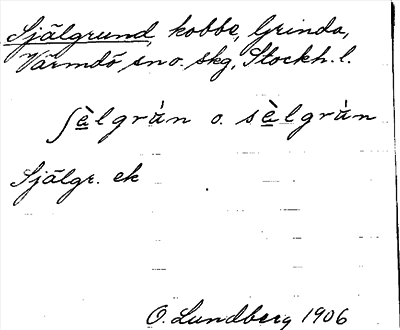 Själgrund, kobbe, Grinda,
Värmdö sn o. skg, Stockh. l.
ʃè̲lgrùn o. sè̲lgrùn
Själgr. ek
O. Lundberg 1906